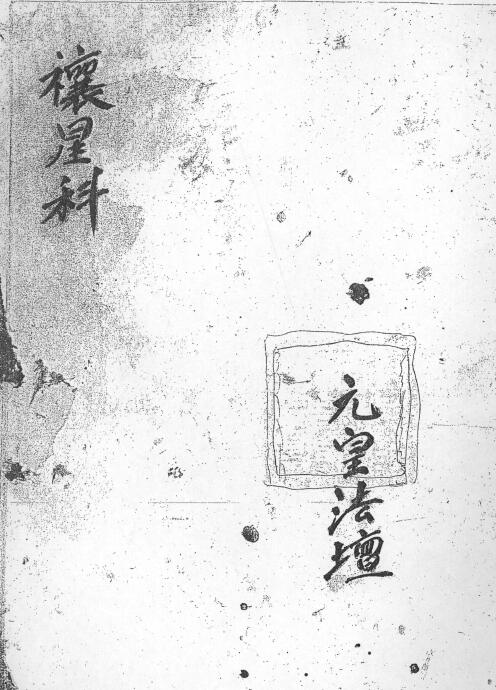 禳星科
元皇法壇